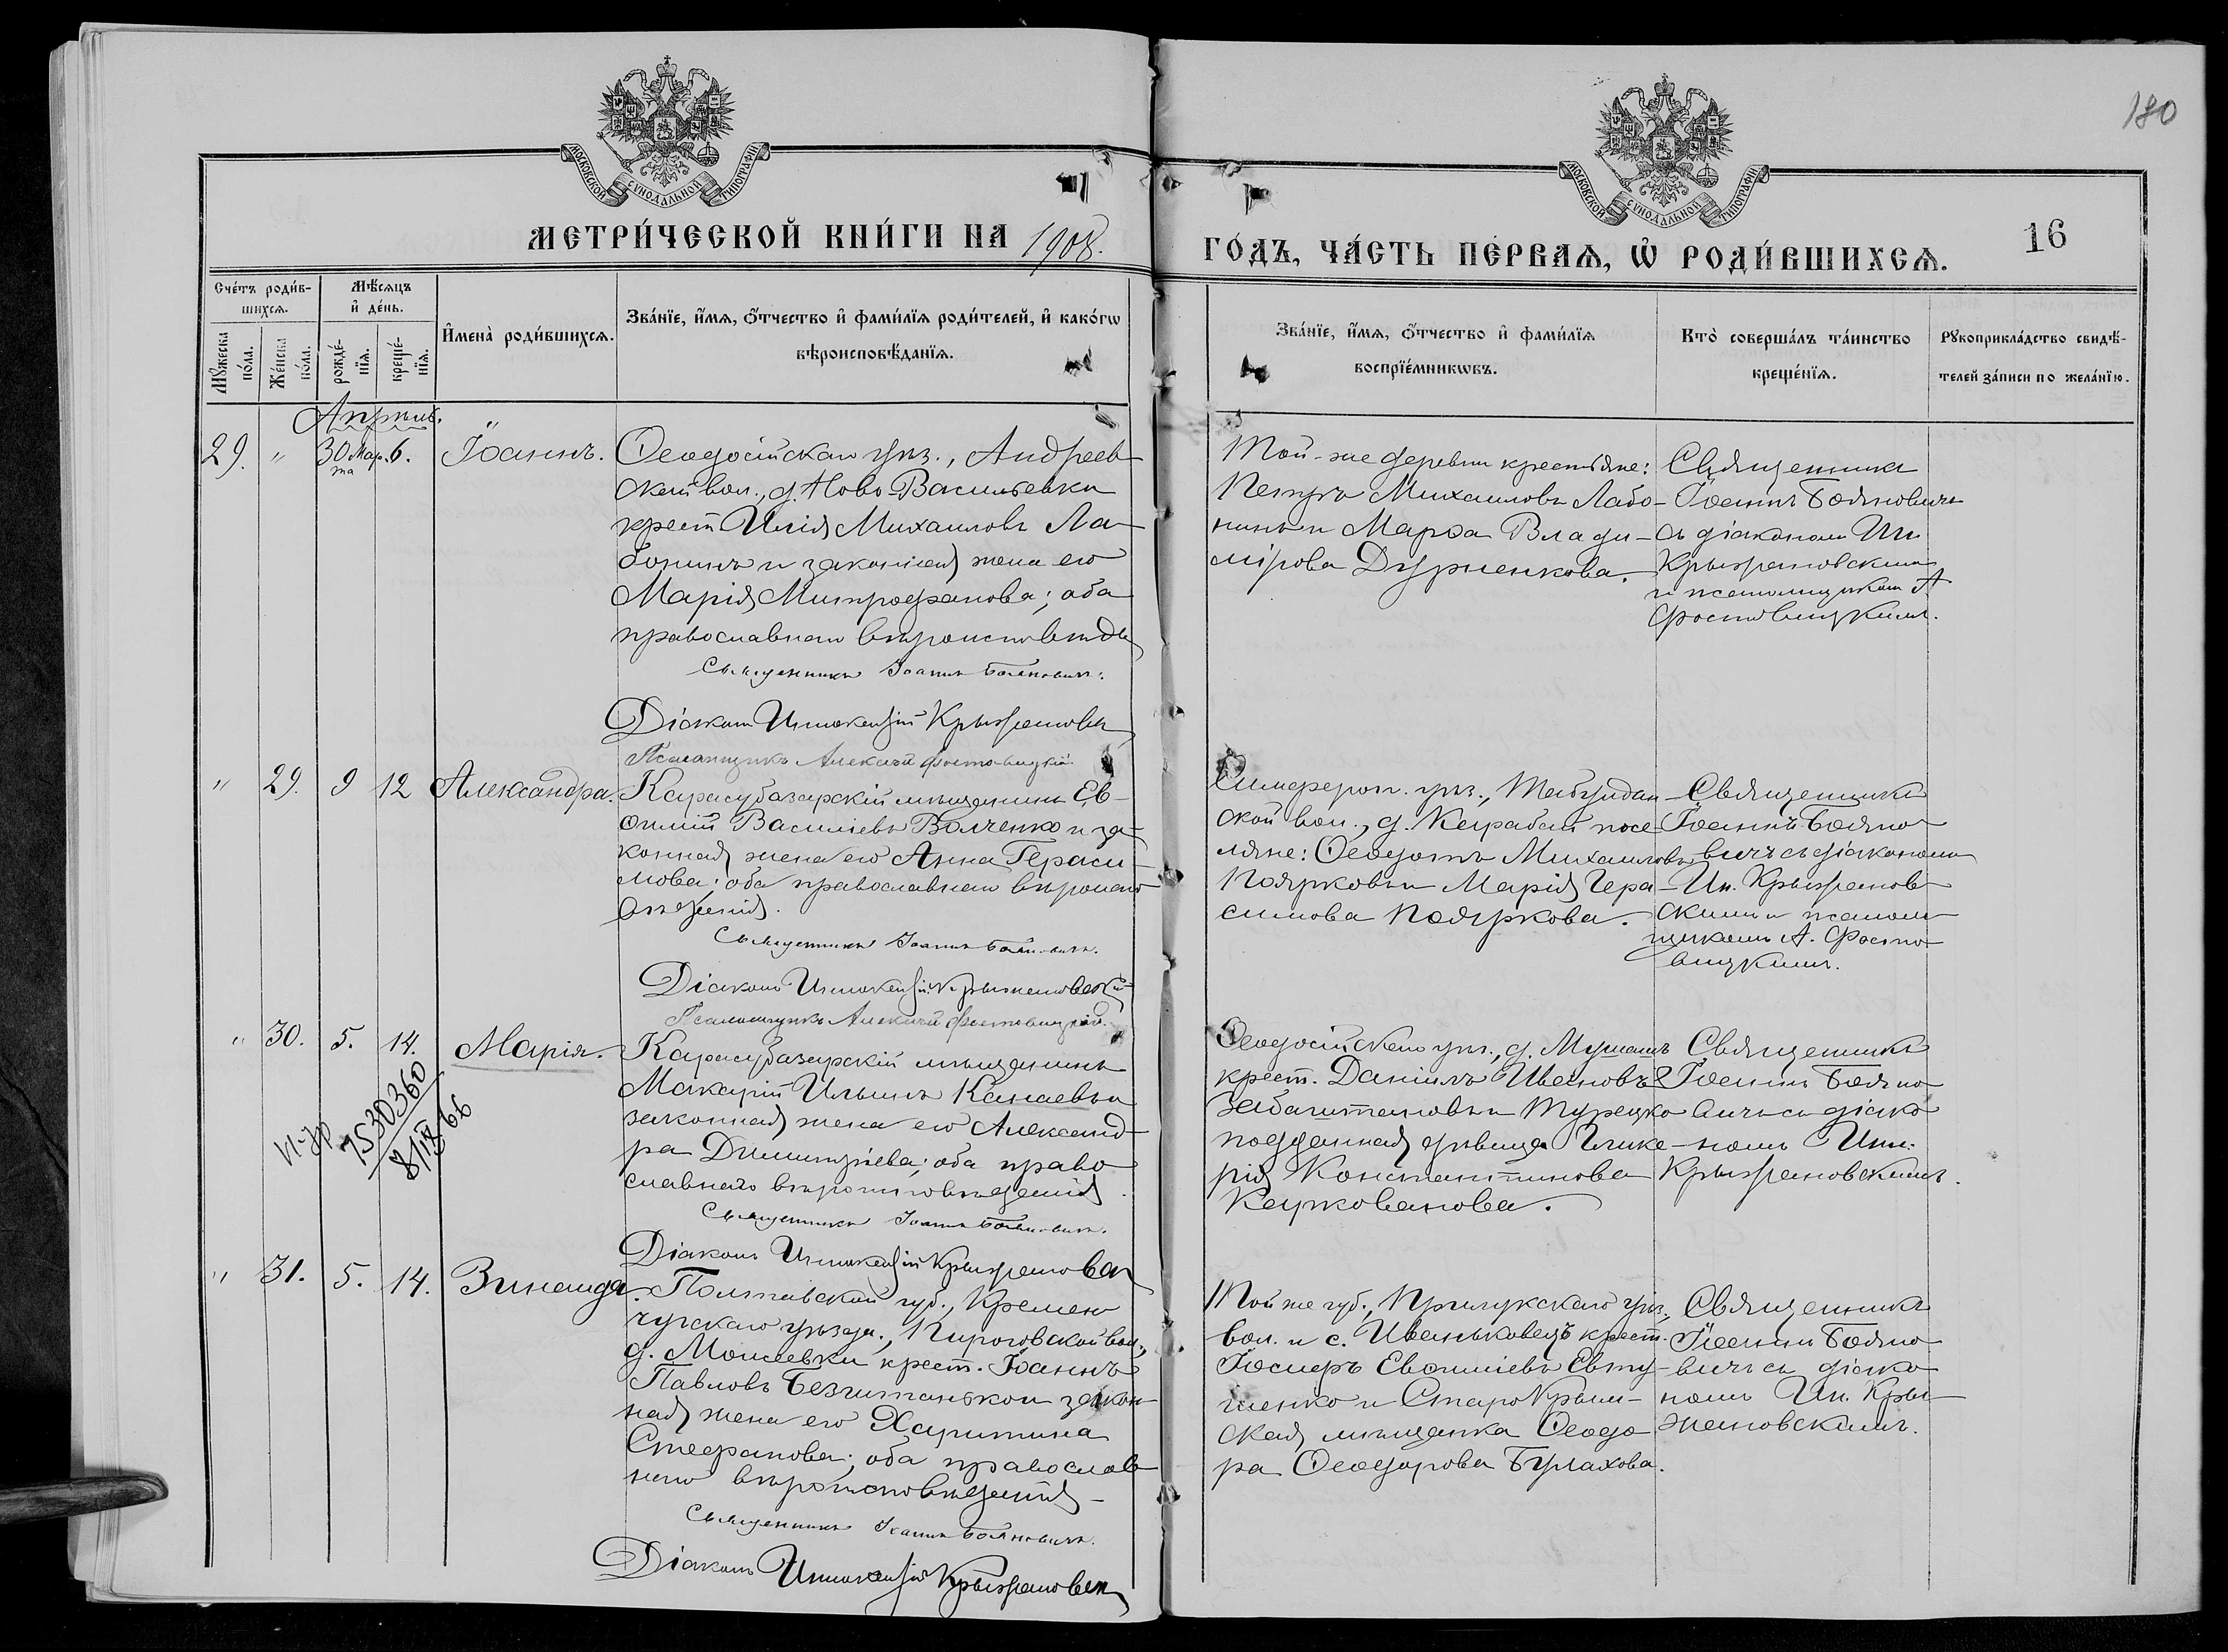 180
МОСКОВСКОЙ СѴНОДАЛЬНОЙ ТИПОГРАФІИ
МОСКОВСКОЙ СѴНОДАЛЬНОЙ ТИПОГРАФІИ
МЕТРИ́ЧЕСКОЙ КНИ́ГИ НА 1908.
ГО́ДЪ, ЧА́СТЬ ПЕ́РВАѦ, Ѡ҆ РОДИ́ВШИХСѦ.
16
Сче́тъ роди́в-
шихсѧ.
Мꙋ́жеска по́ла.
Же́нска по́ла.
Мѣ́сѧцъ
и҆ де́нь.
рожде́-
нїѧ.
креще́-
нїѧ.
И҆мена̀ роди́вшихсѧ.
Зва́нїе, и҆́мѧ, ѻ҆́тчество и҆ фами́лїѧ роди́телей, и҆ како́гѡ
вѣроисповѣ́данїѧ.
Зва́нїе, и҆́мѧ, ѻ҆́тчество и҆ фами́лїѧ
воспрїе́мникѡвъ.
Кто̀ соверша́лъ та́инство
креще́нїѧ.
Рꙋкоприкла́дство свидѣ́-
телей за́писи по жела́нїю.
Апрѣль.
29. " 30 Мар. 6. Іоаннъ.
та
Ѳеодосійскаго уѣз., Андреев-
ской вол., д. Ново-Васильевки
крест. Илія Михаиловъ Ла-
бонинъ и законная жена его
Марія Митрофанова; оба
православнаго
Священникъ Іоаннъ Бояновичъ.
Діаконъ Иннокентій Крыжановск
Псаломщикъ Алексій Фостовицкій
Той-же деревни крестьяне:
Петръ Михаиловъ Лабо-
нинъ и Марѳа Влади-
мірова Дурненкова.
Священникъ
Іоаннъ Бояновичъ
съ діакономъ Ин.
Крыжановскимъ
и псаломщикомъ А
Фостовицкимъ.
" 29. 9 12 Александра.
Карасубазарскій мѣщанинъ Ев-
ѳимій Васильевъ Волченко и за-
конная жена его Анна Гераси-
мова; оба православнаго вѣроиспо-
вѣданія.
Священникъ Іоаннъ Бояновичъ.
Діаконъ Иннокентій Крыжановскій
Псаломщикъ Алексій Фостовицкій.
Симфероп. уѣз., Табулдин-
ской вол., д. Карабай посе-
ляне: Ѳеодотъ Михаиловъ
Поярковъ и Марія Гера-
симова Пояркова.
Священникъ
Іоаннъ Бояно-
вичъ съ діакономъ
Ин. Крыжанов-
скимъ и псалом-
щикомъ А. Фосто-
вицкимъ.
" 30. 5. 14. Марія.
7530360
8/IX 66
Карасубазарскій мѣщанинъ
Макарій Ильинъ Канаевъ и
законная жена его Александ-
ра Димитріева; оба право-
славнаго вѣроисповѣданія
Священникъ Іоаннъ Бояновичъ.
Діаконъ Иннокентій Крыжановск
Ѳеодосійскаго уѣз., д.
крест. Даніилъ Ивановъ
и Турецко
подданная дѣвица Глике-
рія Константинова
Священникъ
Іоаннъ Бояно-
вичъ съ діако-
номъ Инн.
Крыжановскимъ.
" 31. 5. 14. Зинаида.
Полтавской губ., Кремен-
чугскаго уѣзда., Пироговской вол.,
д. Моисеевки крест. Іоаннъ
Павловъ и закон-
ная жена его Харитина
Стефанова; оба православ-
наго вѣроисповѣданія
Священникъ Іоаннъ Бояновичъ.
Діаконъ Иннокентій Крыжановск
Той же губ., Прилукскаго уѣз.,
вол. и с. Иваньковецъ крест.
Іосифъ Евѳиміевъ Евту-
шенко и СтароКрым-
ская мѣщанка Ѳеодо-
ра Ѳеодорова Булахова.
Священникъ
Іоаннъ Бояно-
вичъ съ діако-
номъ Ин. Кры-
жановскимъ.